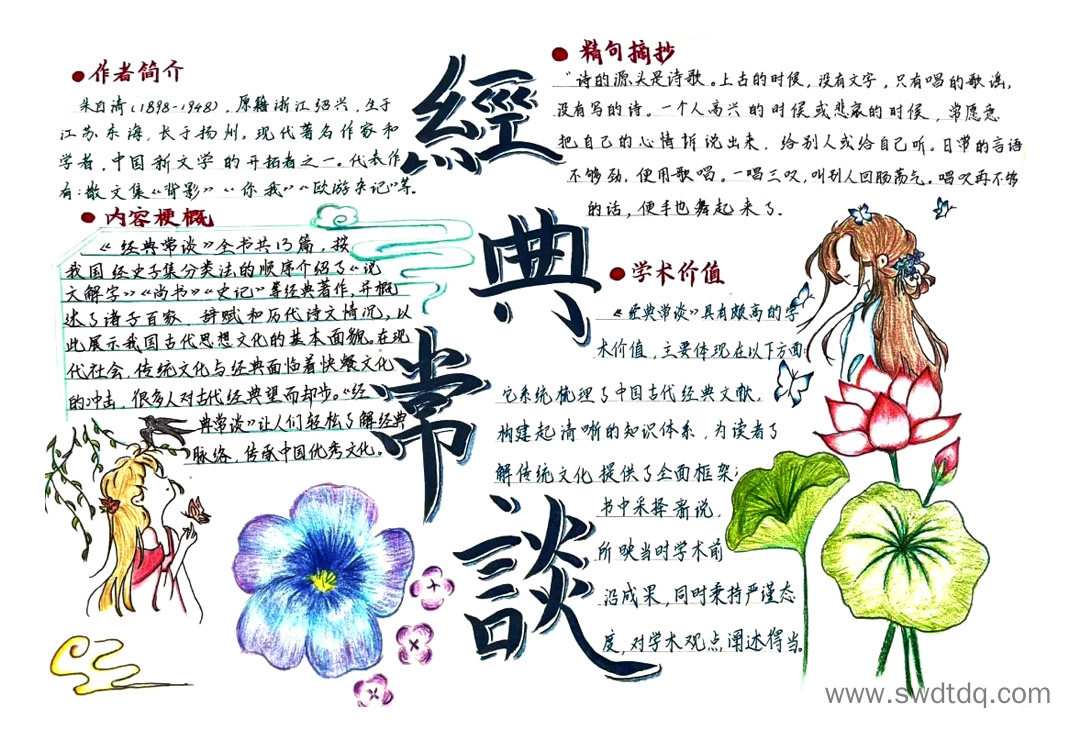 作者简介
朱自清(1898-1948)，原籍浙江绍兴，生于
江苏东海，长于扬州，现代著名作家和
学者，中国新文学的开拓者之一。代表作
有：散文集《背影》《你我》《欧游杂记》等。
内容梗概
《经典常谈》全书共13篇，按
我国经史子集分类法的顺序介绍了《说
文解字》《尚书》《史记》等经典著作，并概
述了诸子百家、辞赋和历代诗文情况，以
此展示我国古代思想文化的基本面貌。在现
代社会，传统文化与经典面临着快餐文化
的冲击，很多人对古代经典望而却步。《经
典常谈》让人们轻松了解经典
脉络，传承中国优秀文化。
經典常談
精句摘抄
“诗的源头是诗歌。上古的时候，没有文字，只有唱的歌谣，
没有写的诗。一个人高兴的时候或悲哀的时候，常愿意
把自己的心情诉说出来，给别人或给自己听。日常的言语
不够劲，便用歌唱。一唱三叹，叫别人回肠荡气。唱叹再不够
的话，便手也舞起来了。
学术价值
《经典常谈》具有颇高的学
术价值，主要体现在以下方面：
它系统梳理了中国古代经典文献，
构建起清晰的知识体系，为读者了
解传统文化提供了全面框架；
书中采择新说，
所映当时学术前
沿成果，同时秉持严谨态
度，对学术观点阐述得当。
www.swdtdq.com